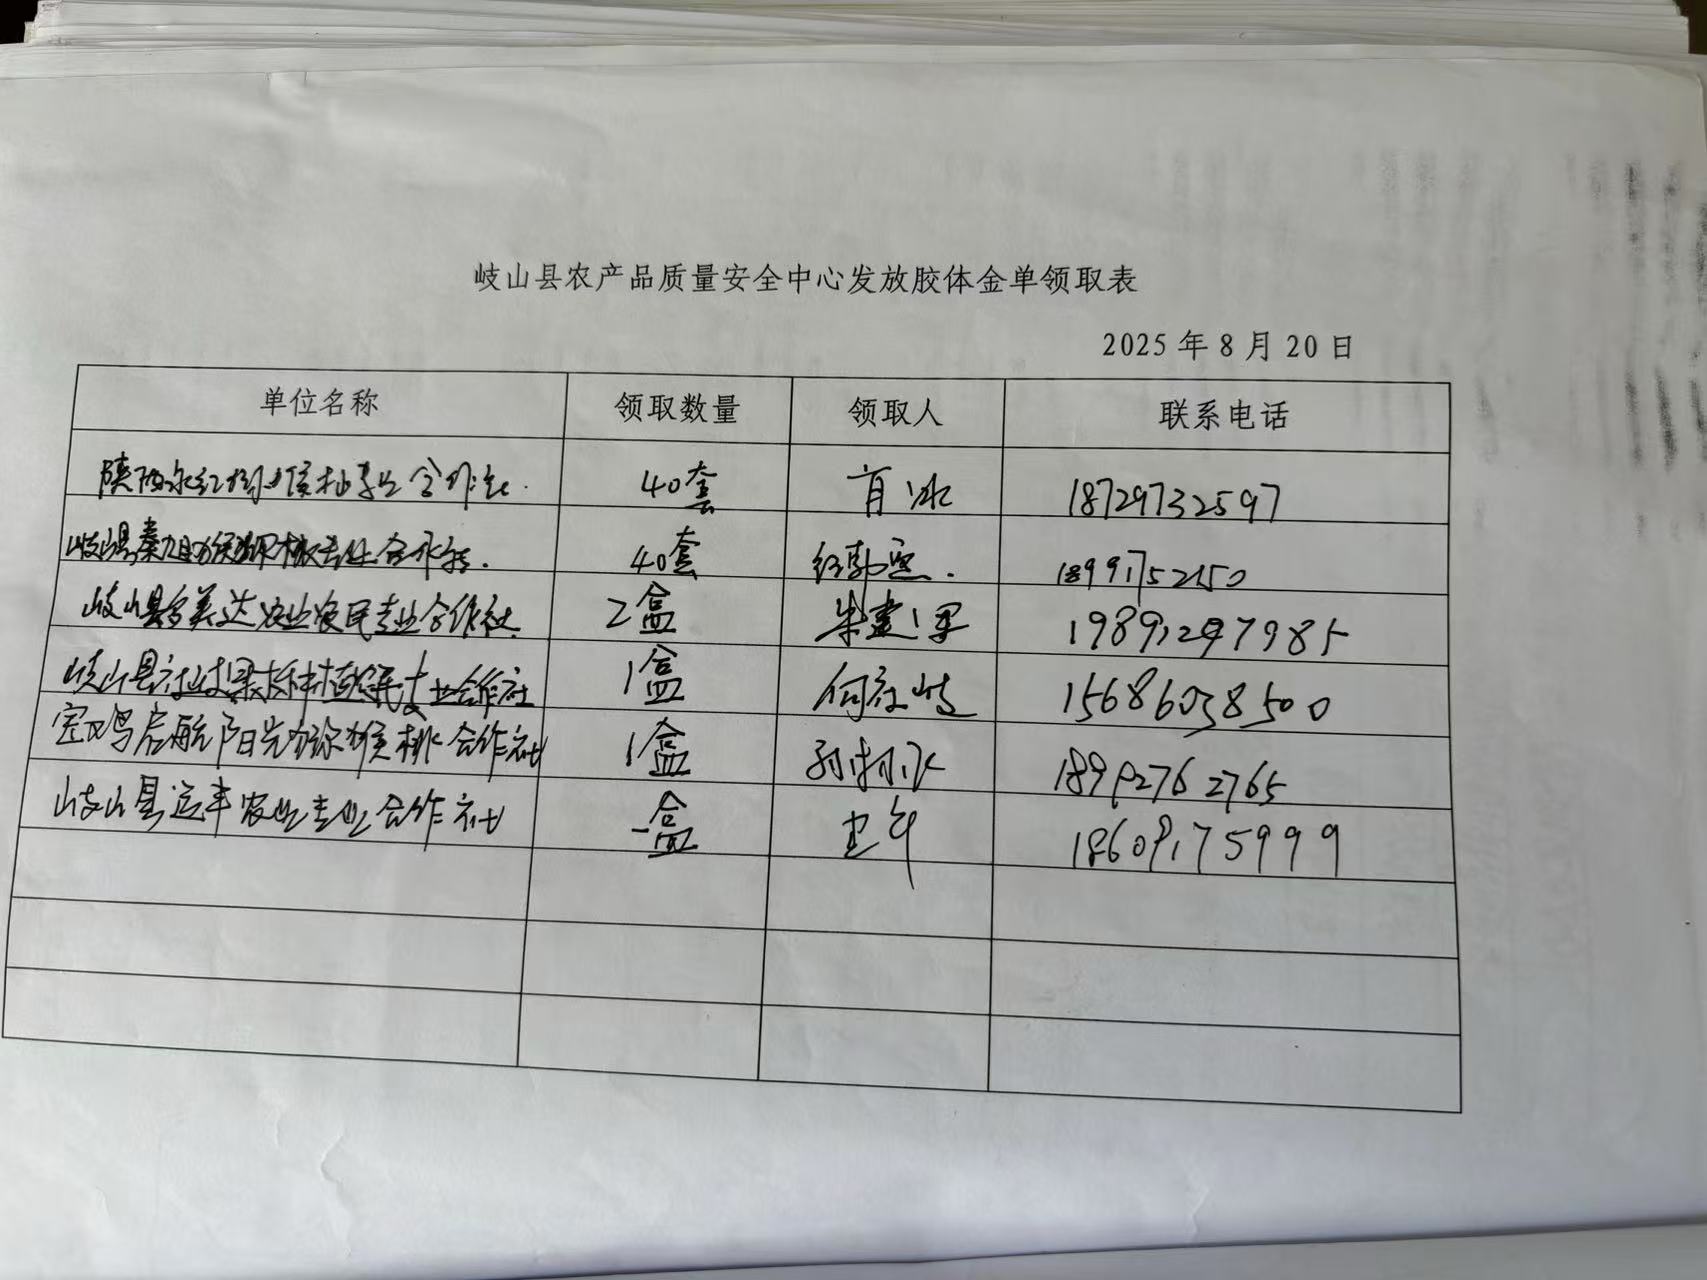 岐山县农产品质量安全中心发放胶体金单领取表
2025年8月20日
单位名称 领取数量 领取人 联系电话
合作社. 40套 肖冰 18729732597
岐山县秦 专业合作社. 40套 18991752150
岐山县 美达农业农民专业合作社 2盒 朱建 19891297985
岐山县 专业合作社 1盒 何社岐 15686038500
宝鸡启航阳光 猴桃合作社 1盒 18992762765
岐山县 丰农业专业合作社 一盒 18609175999